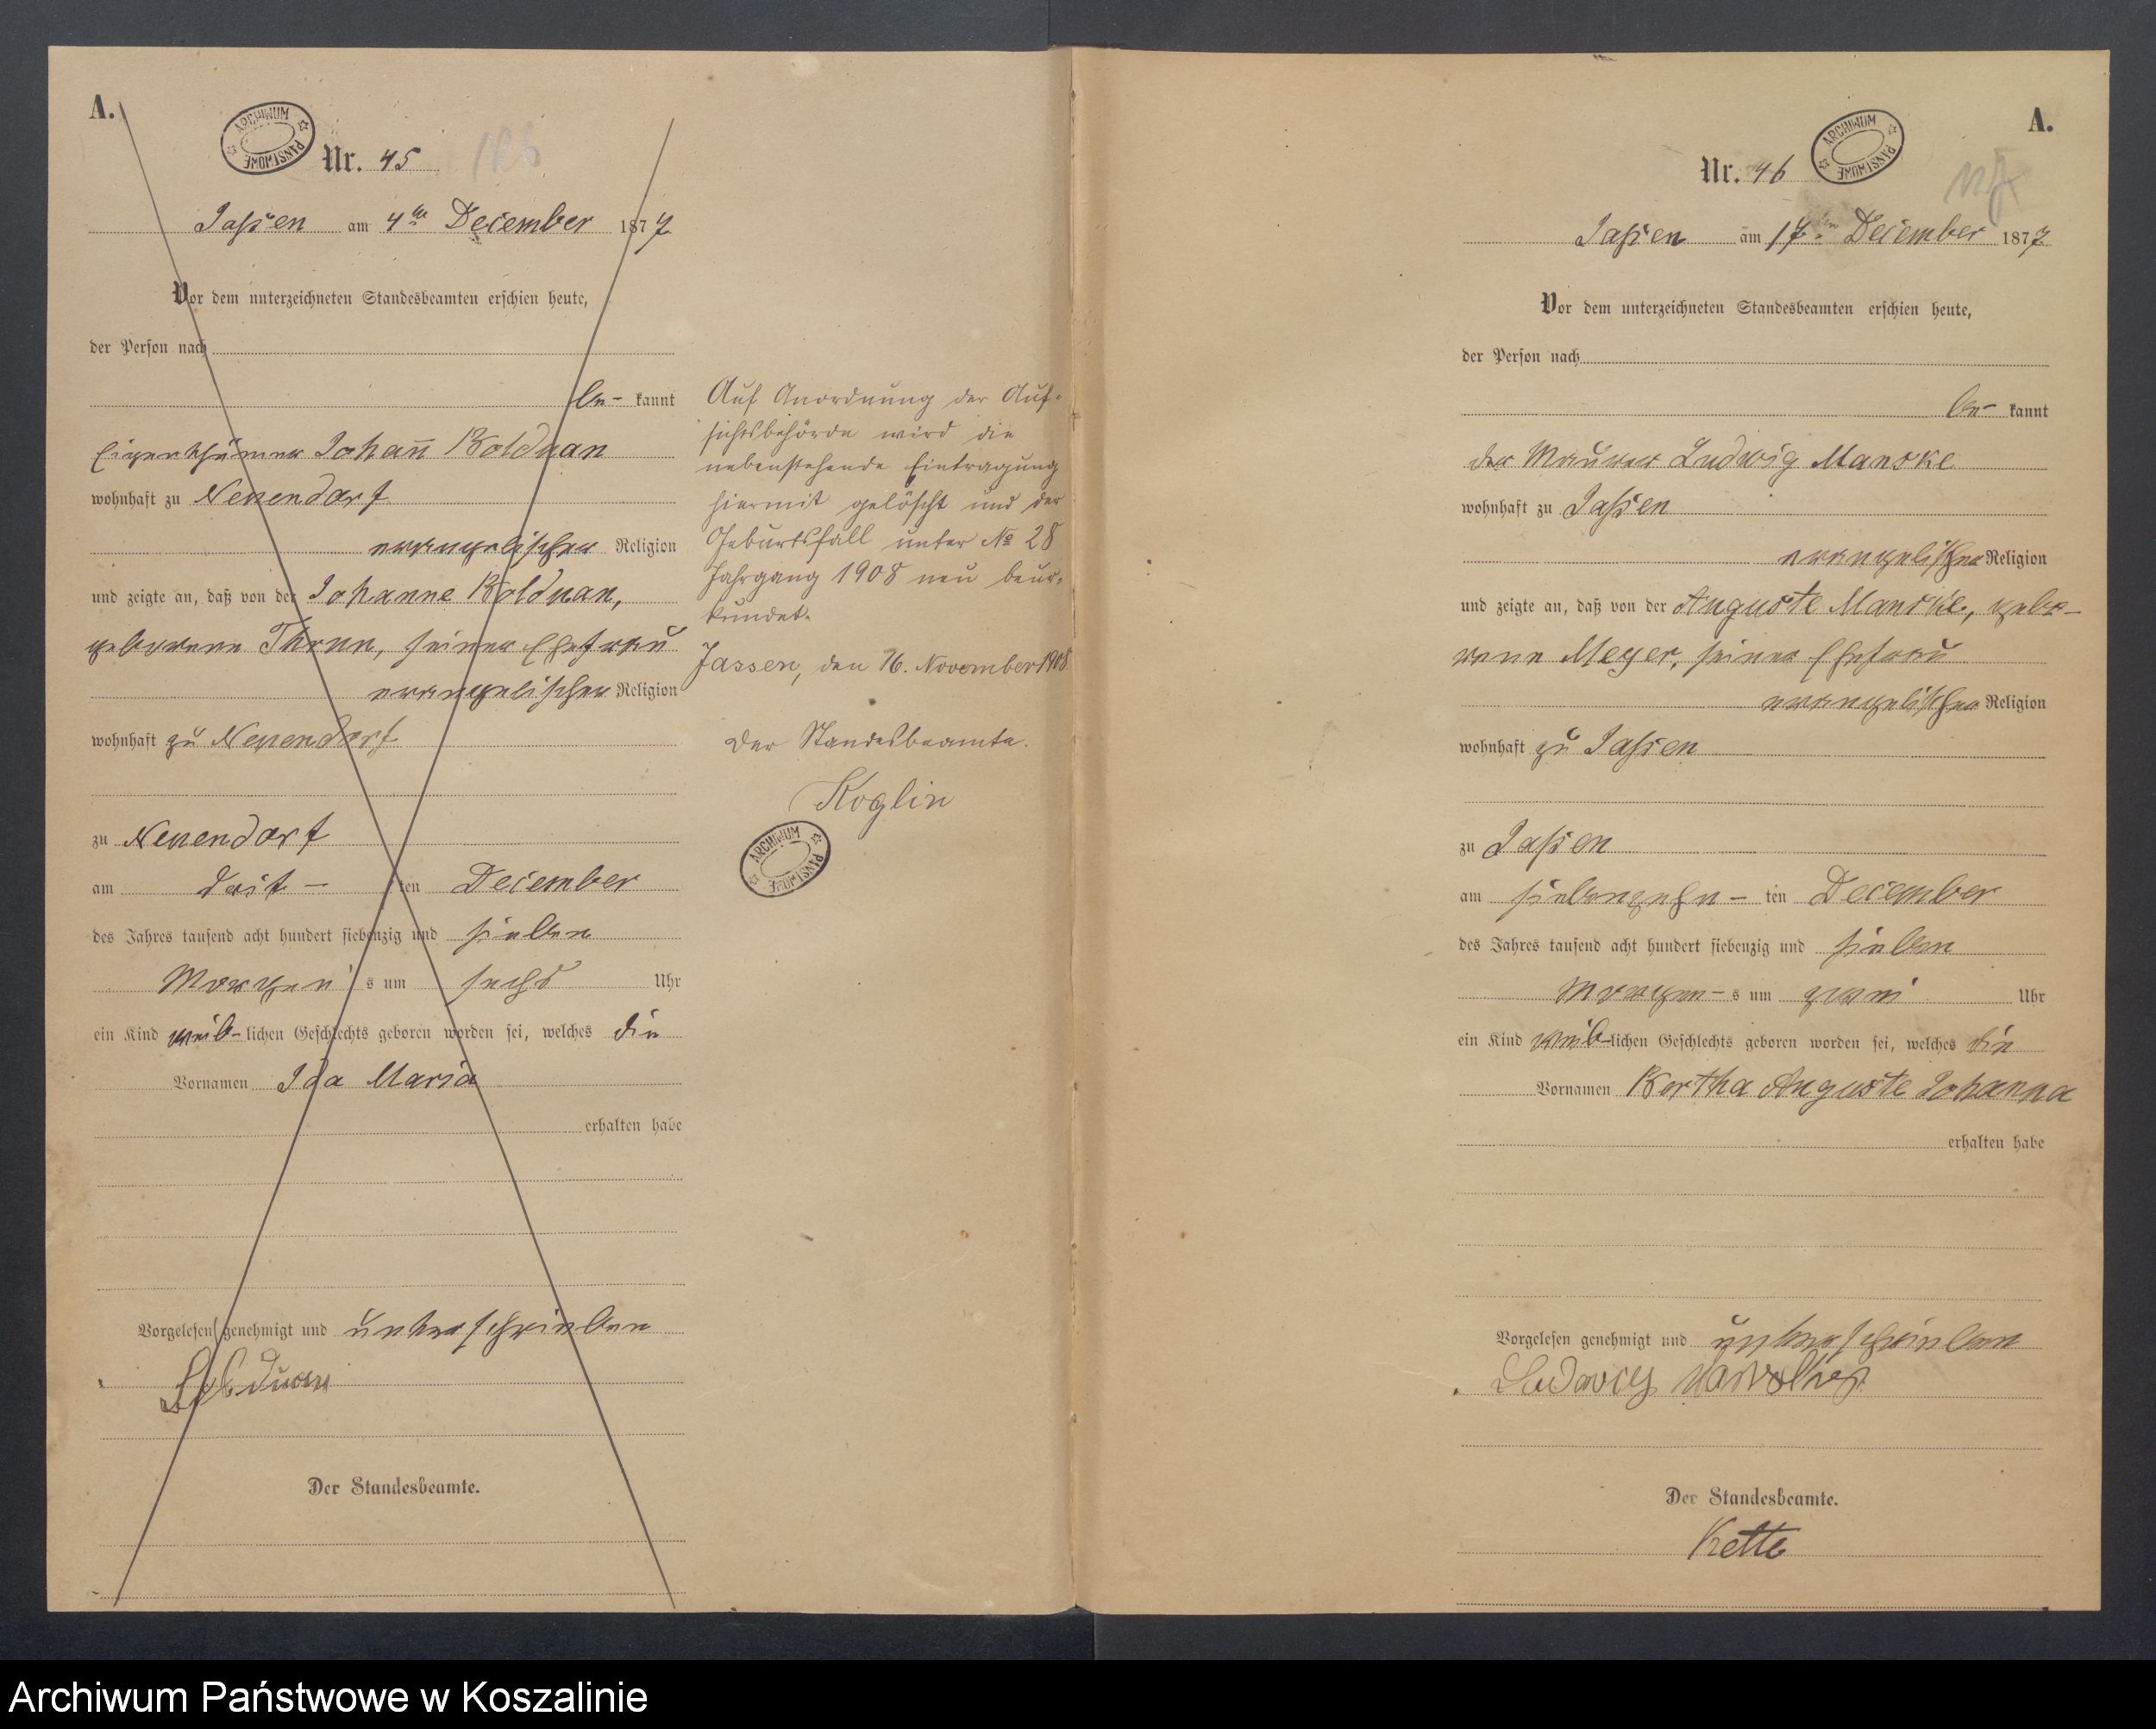 A.
ARCHIWUM PAŃSTWOWE
Nr. 45
Jassen am 4ten December 1877
Vor dem unterzeichneten Standesbeamten erschien heute,
der Person nach
be- kannt
Eigenthümer Johann Bolduan
wohnhaft zu Neuendorf
evangelischer Religion
und zeigte an, daß von der Johanne Bolduan,
geborene Thrun, seiner Ehefrau
evangelischer Religion
wohnhaft zu Neuendorf
zu Neuendorf
am drit- ten December
des Jahres tausend acht hundert siebenzig und sieben
Morgen s um sechs Uhr
ein Kind weib-lichen Geschlechts geboren worden sei, welches die
Vornamen Ida Maria
erhalten habe
Vorgelesen genehmigt und unterschrieben
Der Standesbeamte.
Auf Anordnung der Auf-
sichtsbehörde wird die
nebenstehende Eintragung
hiermit gelöscht und der
Geburtsfall unter No 28
Jahrgang 1908 neu beur-
kundet.
Jassen, den 16. November 1908
Der Standesbeamte.
Koglin
ARCHIWUM PAŃSTWOWE
A.
Nr. 46
ARCHIWUM PAŃSTWOWE
Jassen am 17ten December 1877
Vor dem unterzeichneten Standesbeamten erschien heute,
der Person nach
be- kannt
der Maurer Ludwig Manske
wohnhaft zu Jassen
evangelischer Religion
und zeigte an, daß von der Auguste Manske, gebo-
rene Meyer, seiner Ehefrau
evangelischer Religion
wohnhaft zu Jassen
zu Jassen
am siebenzehn- ten December
des Jahres tausend acht hundert siebenzig und sieben
Morgen- s um zwei Uhr
ein Kind weib-lichen Geschlechts geboren worden sei, welches die
Vornamen Bertha Auguste Johanna
erhalten habe
Vorgelesen genehmigt und unterschrieben
Ludwig
Der Standesbeamte.
Kette
Archiwum Państwowe w Koszalinie